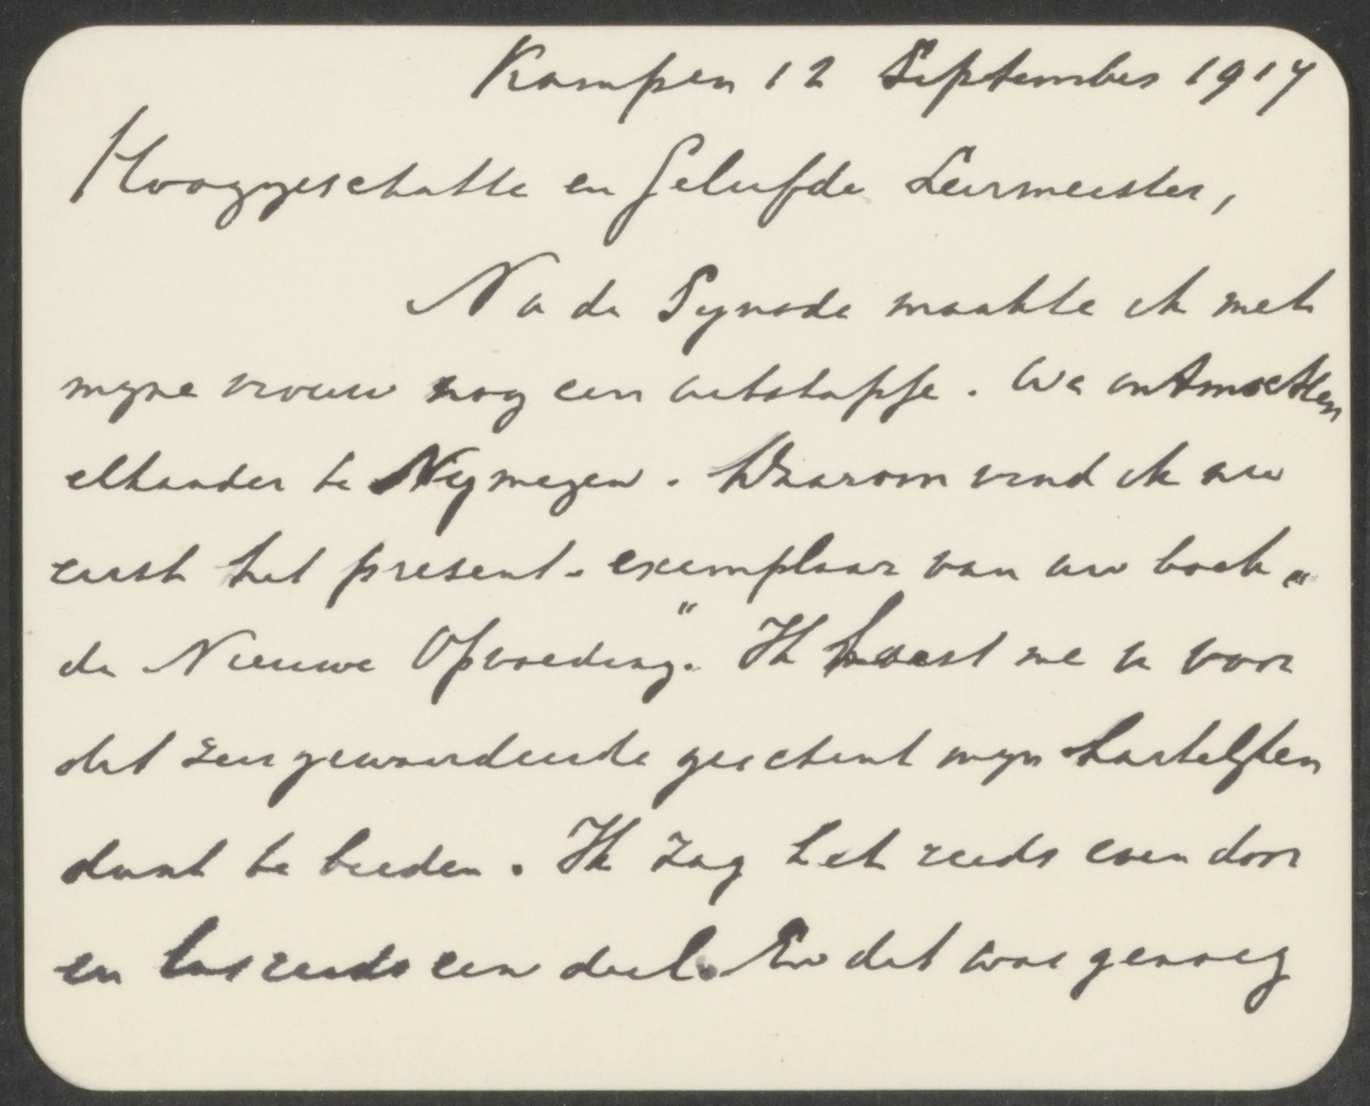 Kampen 12 September 1917
Hooggeschatte en Geliefde Leermeester,
Na de Synode maakte ik met
mijne vrouw nog een uitstapje. We ontmoetten
elkander te Nijmegen. Daarom vind ik nu
eerst het present-exemplaar van uw boek „
de Nieuwe Opvoeding". Ik haast me u voor
dit zeer gewaardeerde geschenk mijn hartelijken
dank te bieden. Ik zag het reeds even door
en las reeds een deel. En dit was genoeg